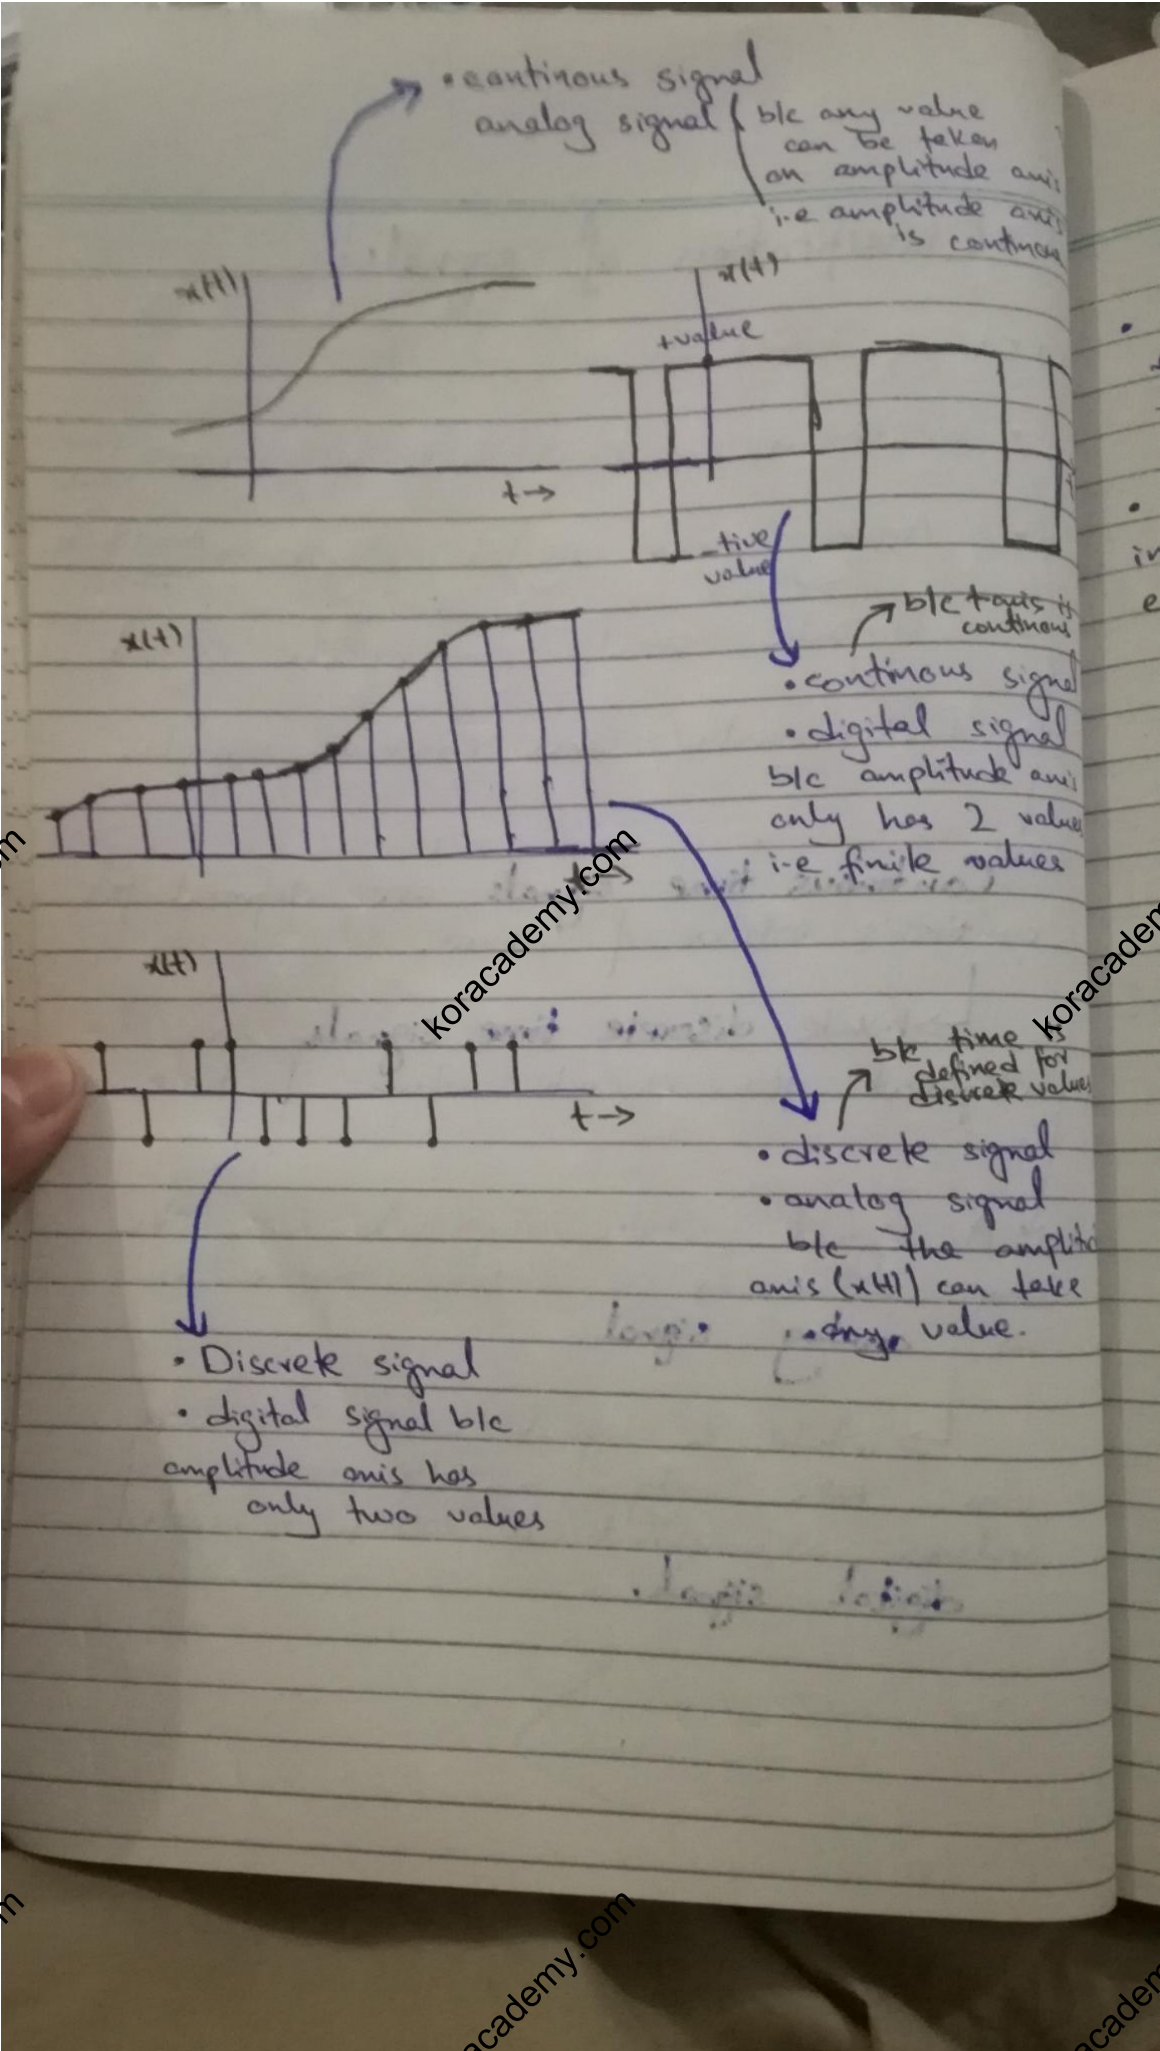 • continous signal
analog signal
b/c any value
can be taken
on amplitude axis
i.e amplitude axis
is continous
x(t)
t→
x(t)
+value
-tive
value
t
b/c t axis is
continous
• continous signal
• digital signal
b/c amplitude axis
only has 2 values
i.e finite values
x(t)
t→
x(t)
t→
b/c time is
defined for
discrete values
• discrete signal
• analog signal
b/c the amplitd
axis (x(t)) can take
any value.
• Discrete signal
• digital signal b/c
amplitude axis has
only two values
koracademy.com
koracadem
om
in
e
academy.com
academ